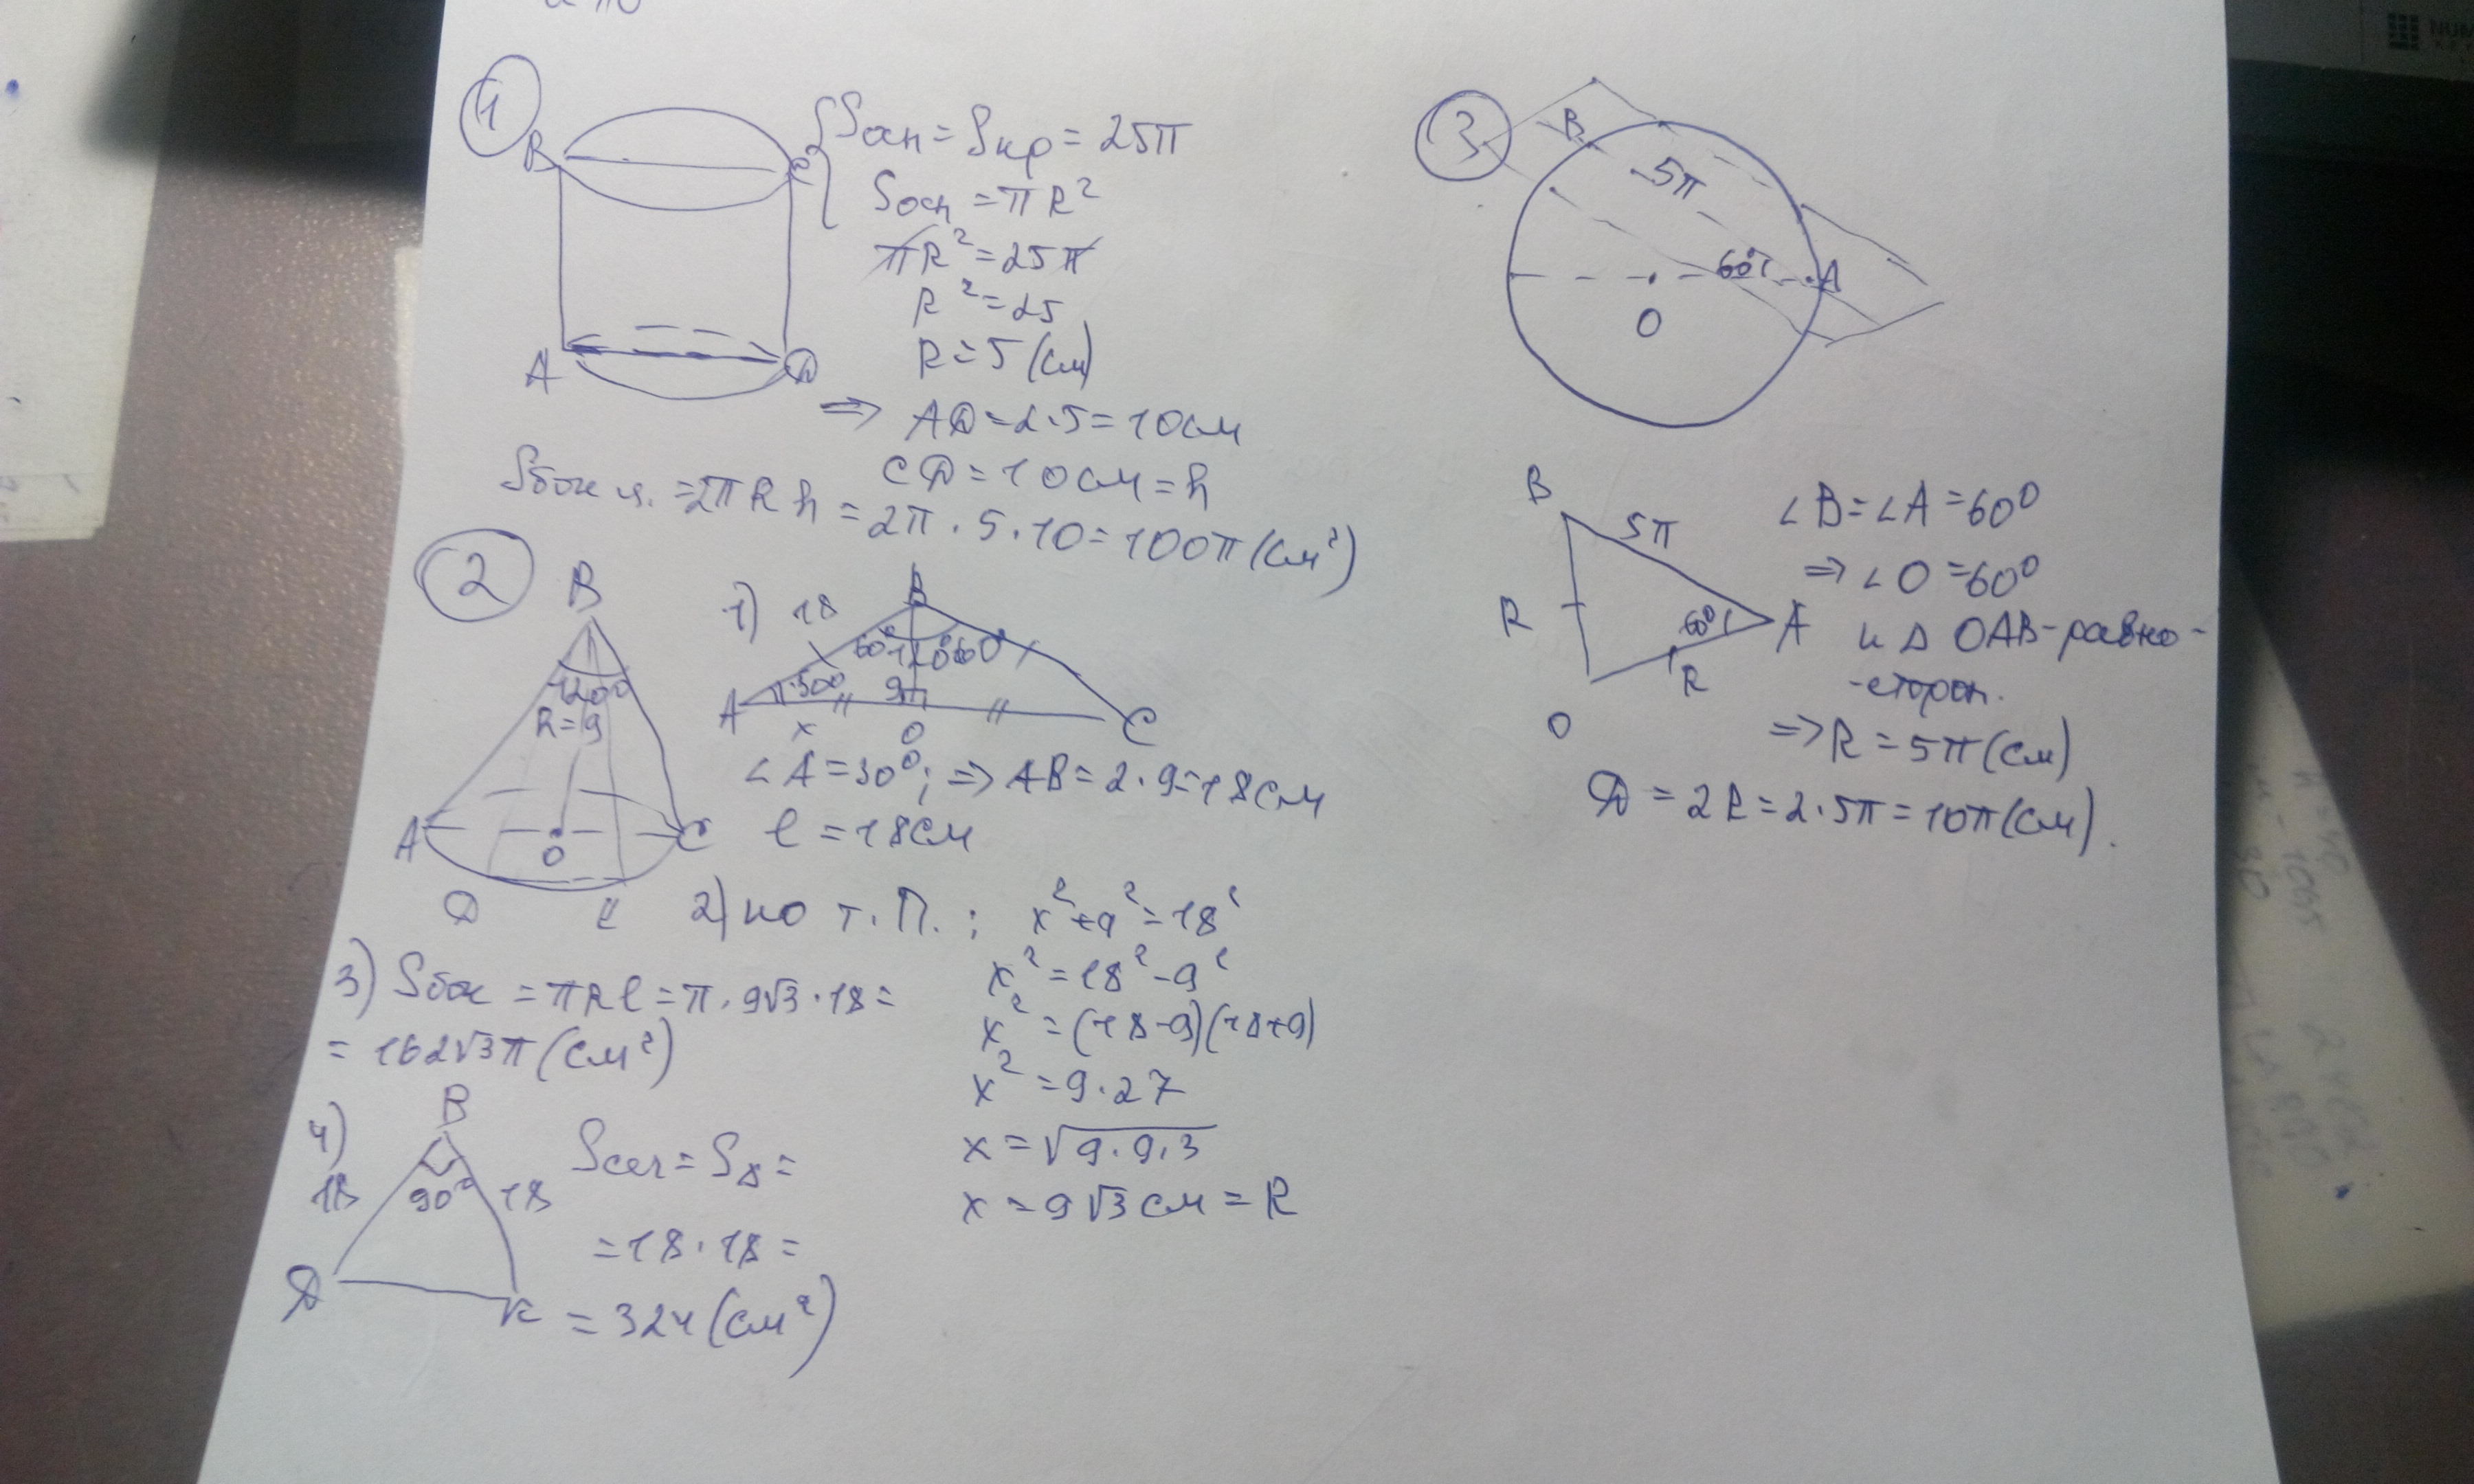 1
B
C
A
D
Sосн = Sкр = 25π
Sосн = πR²
πR² = 25π
R² = 25
R = 5 (см)
⇒ AD = 2·5 = 10см
CD = 10см = h
Sбок ц. = 2πRh = 2π·5·10 = 100π (см²)
2
B
120°
R=9
A
O
C
D
1) 18
B
60° 120° 60°
30°
9
A
x
O
C
∠A = 30°; ⇒ AB = 2·9 = 18см
l = 18см
2) по т. П.: x² + 9² = 18²
x² = 18² - 9²
x² = (18-9)(18+9)
x² = 9·27
x = √9·9·3
x = 9√3 см = R
3) Sбок = πRl = π·9√3·18 =
= 162√3π (см²)
4)
B
18
90°
18
D
K
Sсеч = S△ =
= 18·18 =
= 324 (см²)
3
B
5π
60°
A
O
B
5π
R
60°
A
R
O
∠B = ∠A = 60°
⇒ ∠O = 60°
и △ OAB - равно-
-сторон.
⇒ R = 5π (см)
D = 2R = 2·5π = 10π (см).